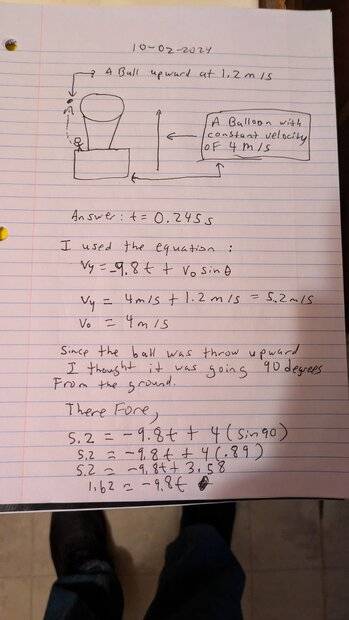 10-02-2024
A Ball upward at 1.2 m/s
A Balloon with
constant velocity
of 4 m/s
Answer: t = 0.245s
I used the equation:
Vy = -9.8t + Vo sinθ
Vy = 4m/s + 1.2 m/s = 5.2 m/s
Vo = 4m/s
Since the ball was throw upward
I thought it was going 90 degrees
From the ground.
There Fore,
5.2 = -9.8t + 4(sin90)
5.2 = -9.8t + 4(.89)
5.2 = -9.8t + 3.58
1.62 = -9.8t